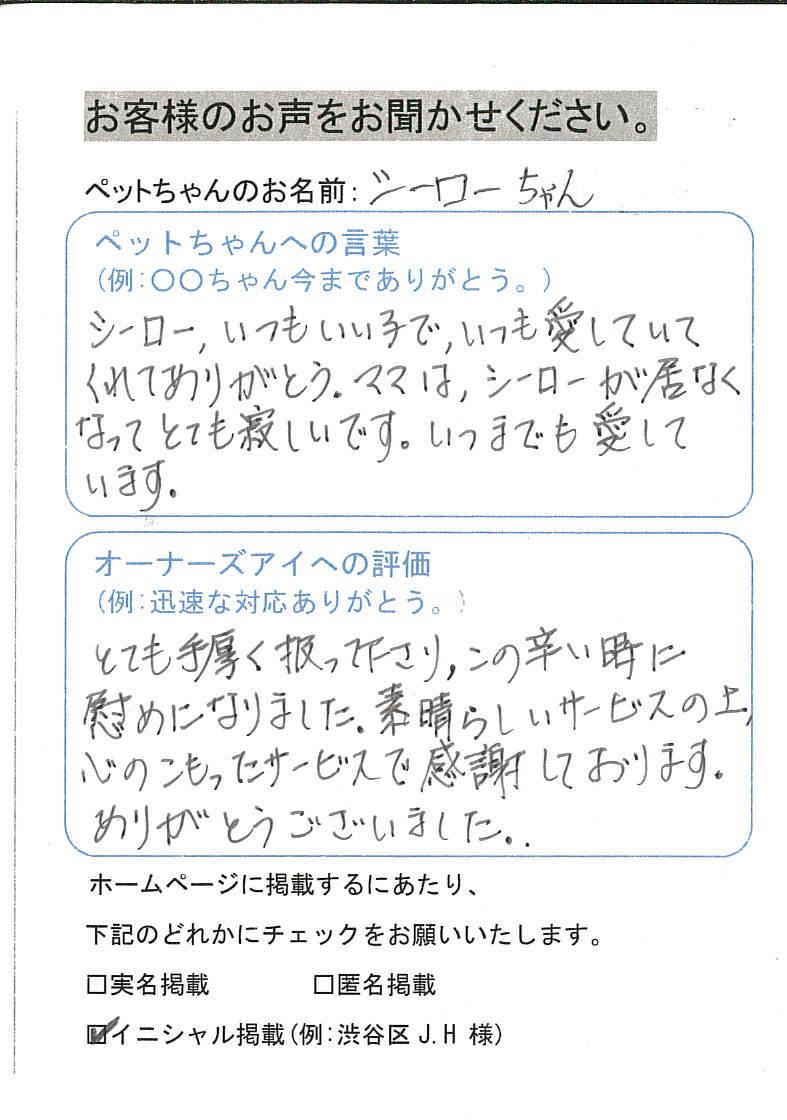 お客様のお声をお聞かせください。
ペットちゃんのお名前:シーローちゃん
ペットちゃんへの言葉
(例:〇〇ちゃん今までありがとう。)
シーロー,いつもいい子で,いつも愛していて
くれてありがとう.ママは,シーローが居なく
なってとても寂しいです。いつまでも愛して
います.
オーナーズアイへの評価
(例:迅速な対応ありがとう。)
とても手厚く扱って下さり,この辛い時に
慰めになりました.素晴らしいサービスの上,
心のこもったサービスで感謝しております.
ありがとうございました..
ホームページに掲載するにあたり、
下記のどれかにチェックをお願いいたします。
□実名掲載 □匿名掲載
☑イニシャル掲載(例:渋谷区J.H 様)